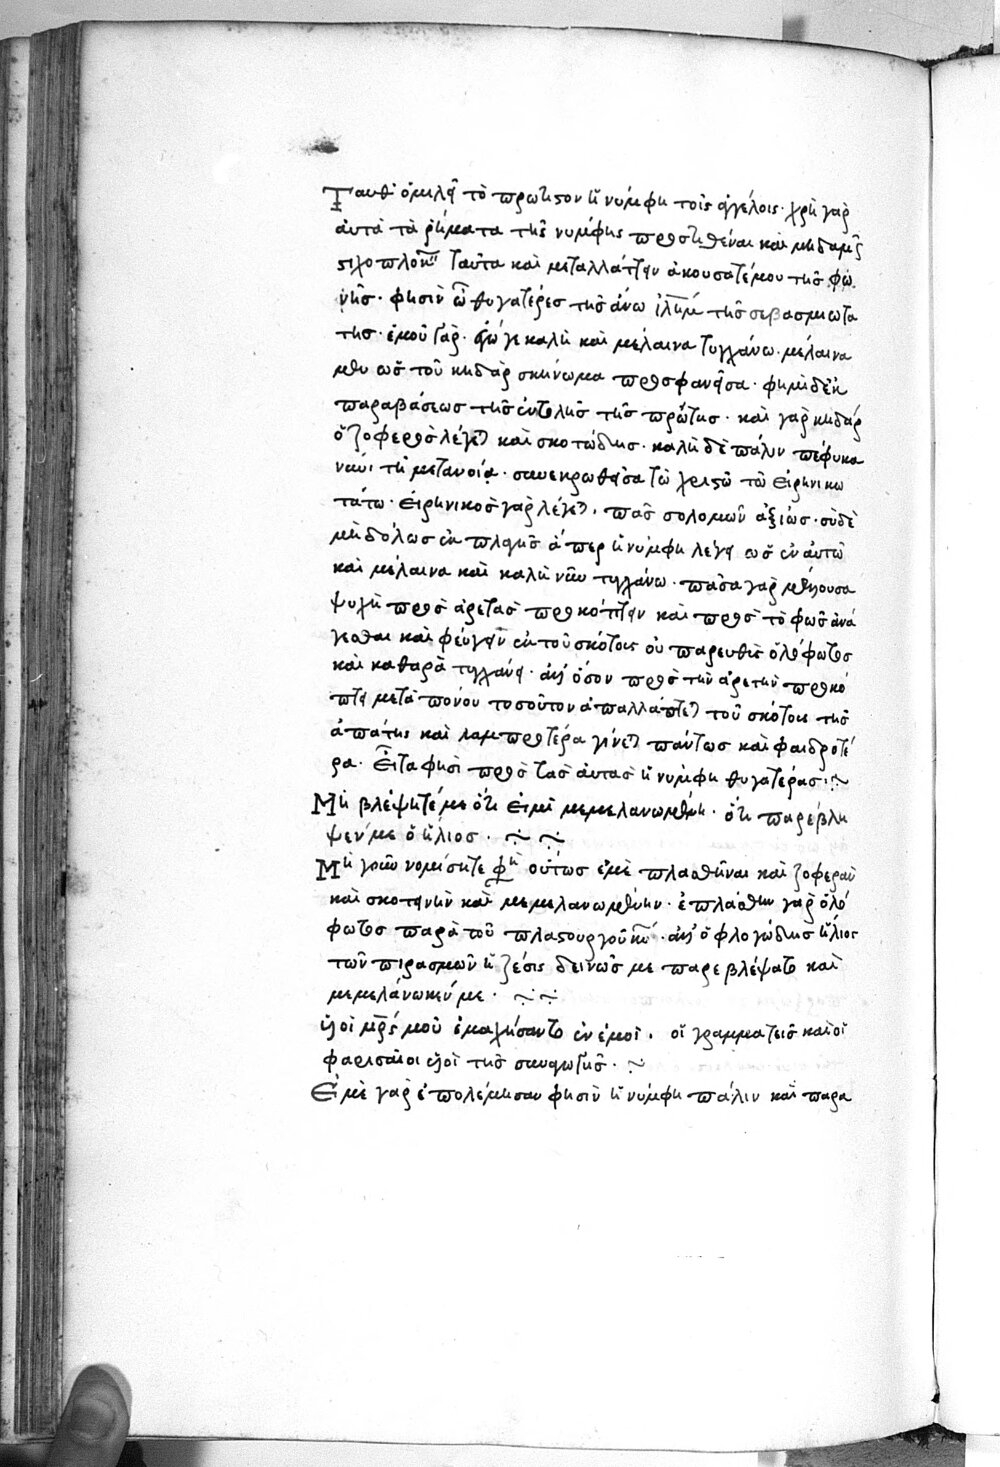 Ταυθ' ὁμιλεῖ τὸ πρώτιστον ἡ νύμφη τοῖς ἀγγέλοις· χρὴ γὰρ
αὐτὰ τὰ ῥήματα τῆς νύμφης προστιθέναι καὶ μηδαμῶς
στιχοπλοκεῖν ταῦτα καὶ μεταλλάττειν ἀκούσατέ μου τῆς φω
νῆς· φησὶν ὦ θυγατέρες τῆς ἄνω ἰλήμ τῆς σεβασμιωτά
της· ἐμοῦ γὰρ· ἐγώγε καλὴ καὶ μέλαινα τυγχάνω· μέλαινα
μὲν ὡς τοῦ κηδὰρ σκήνωμα προσφανεῖσα· φημὶ δὲ ἐκ
παραβάσεως τῆς ἐντολῆς τῆς πρώτης· καὶ γὰρ κηδάρ
ὁ ζοφερὸς λέγεται καὶ σκοτώδης· καλὴ δὲ πάλιν πέφυκα
νυνὶ τῇ μετανοίᾳ· συνεκρωθεῖσα τῶ χριστῶ τῶ εἰρηνικω
τάτω· εἰρηνικὸς γὰρ λέγεται· πᾶς σολομῶν ἀξίως· οὐδὲ
μὴ δόλως ἐκ πλάνης ἅπερ ἡ νύμφη λέγει ὡς ἐν αὐτῶ
καὶ μέλαινα καὶ καλὴ νῦν τυγχάνω· πᾶσα γὰρ μένουσα
ψυχὴ πρὸς ἀρετὰς προκόπτειν καὶ πρὸς τὸ φῶς ἀνά
γεσθαι καὶ φεύγειν ἐκ τοῦ σκότους οὐ παρευθὺς ὁλόφωτος
καὶ καθαρὰ τυγχάνει· ἀλλ' ὅσον πρὸς τὴν ἀρετὴν προκό
πτει μετὰ πόνου τοσοῦτον ἀπαλλάττεται τοῦ σκότους τῆς
ἀπάτης καὶ λαμπροτέρα γίνεται πάντως καὶ φαιδροτέ
ρα· Εἶτα φησὶ πρὸς τὰς αὐτὰς ἡ νύμφη θυγατέρας·
Μὴ βλέψητέ με ὅτι εἰμὶ μεμελανωμένη· ὅτι παρέβλε
ψέν με ὁ ἥλιος·
Μὴ γοῦν νομίσητε φησὶ οὕτως ἐμὲ πλασθῆναι καὶ ζοφερὰν
καὶ σκοτεινὴν καὶ μεμελανωμένην· ἐπλάσθην γὰρ ὁλό
φωτος παρὰ τοῦ πλαστουργοῦ κυ· ἀλλ' ὁ φλογώδης ἥλιος
τῶν πιρασμῶν ἡ ζέσις δεινῶς με παρεβλέψατο καὶ
μεμελάνωκέν με·
υἱοὶ μρς μοῦ ἐμαχήσαντο ἐν ἐμοὶ· οἱ γραμματεῖς καὶ οἱ
φαρισαῖοι υἱοὶ τῆς συναγωγῆς·
Εμὲ γὰρ ἐπολέμησαν φησὶν ἡ νύμφη πάλιν καὶ παρα